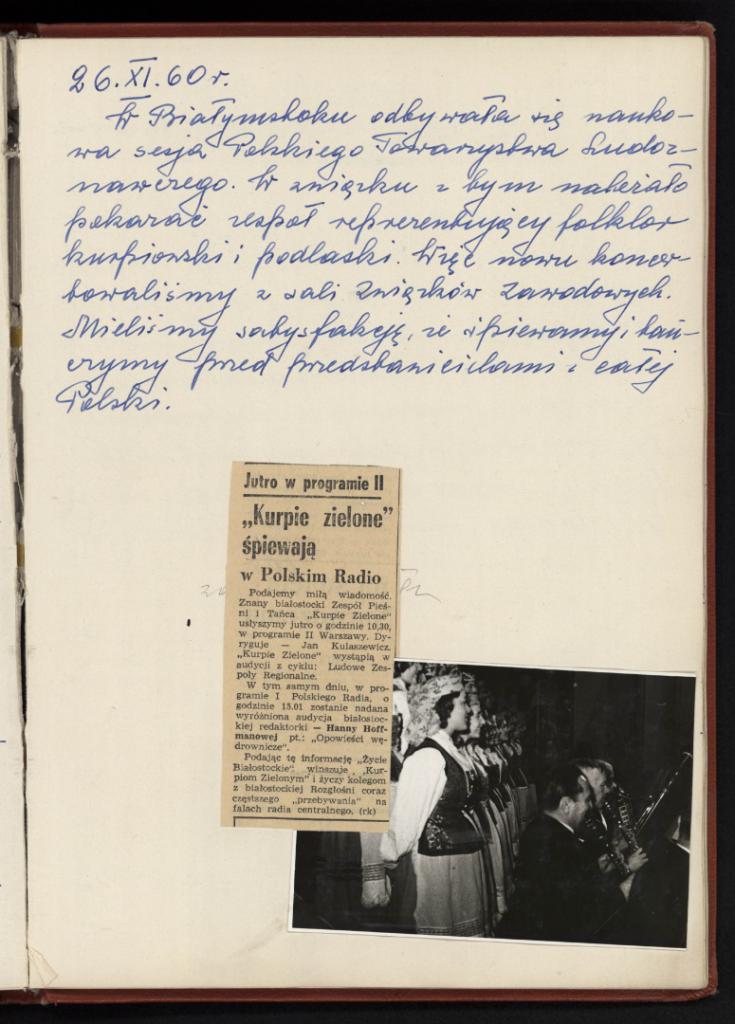 26.XI.60 r.
W Białymstoku odbywała się nauko-
wa sesja Polskiego Towarzystwa Ludoz-
nawczego. W związku z tym należało
pokazać zespół reprezentujący folklor
kurpiowski i podlaski. Więc nowu koncer-
towaliśmy z sali Związków Zawodowych.
Mieliśmy satysfakcję, że śpiewamy i tań-
czymy przed przedstawicielami z całej
Polski.
Jutro w programie II
„Kurpie zielone”
śpiewają
w Polskim Radio
Podajemy miłą wiadomość.
Znany białostocki Zespół Pieś-
ni i Tańca „Kurpie Zielone”
usłyszymy jutro o godzinie 10,30,
w programie II Warszawy. Dy-
ryguje — Jan Kulaszewicz.
„Kurpie Zielone” wystąpią w
audycji z cyklu: Ludowe Zes-
poły Regionalne.
W tym samym dniu, w pro-
gramie I Polskiego Radia, o
godzinie 15.01 zostanie nadana
wyróżniona audycja białostoc-
kiej redaktorki — Hanny Hoff-
manowej pt.: „Opowieści wę-
drownicze”.
Podając tę informację „Życie
Białostockie” winszuje „Kur-
piom Zielonym” i życzy kolegom
z białostockiej Rozgłośni coraz
częstszego „przebywania” na
falach radia centralnego. (rk)